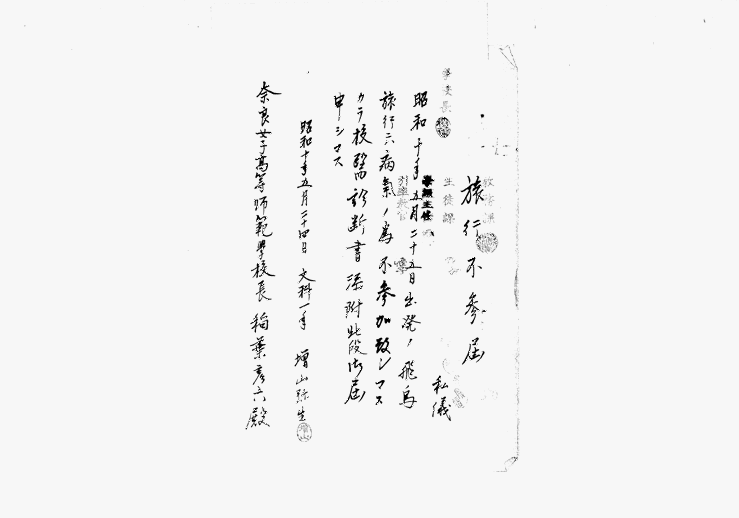 旅行不参届
私儀
昭和十年五月二十五日出発ノ飛鳥
旅行ニ病氣ノ為不参加致シマス
カラ校醫診断書添附此段御届
申シマス
昭和十年五月二十四日 文科一年 増山弥生
奈良女子高等師範學校長 稲葉彦六殿
學校長
學級主任
生徒課